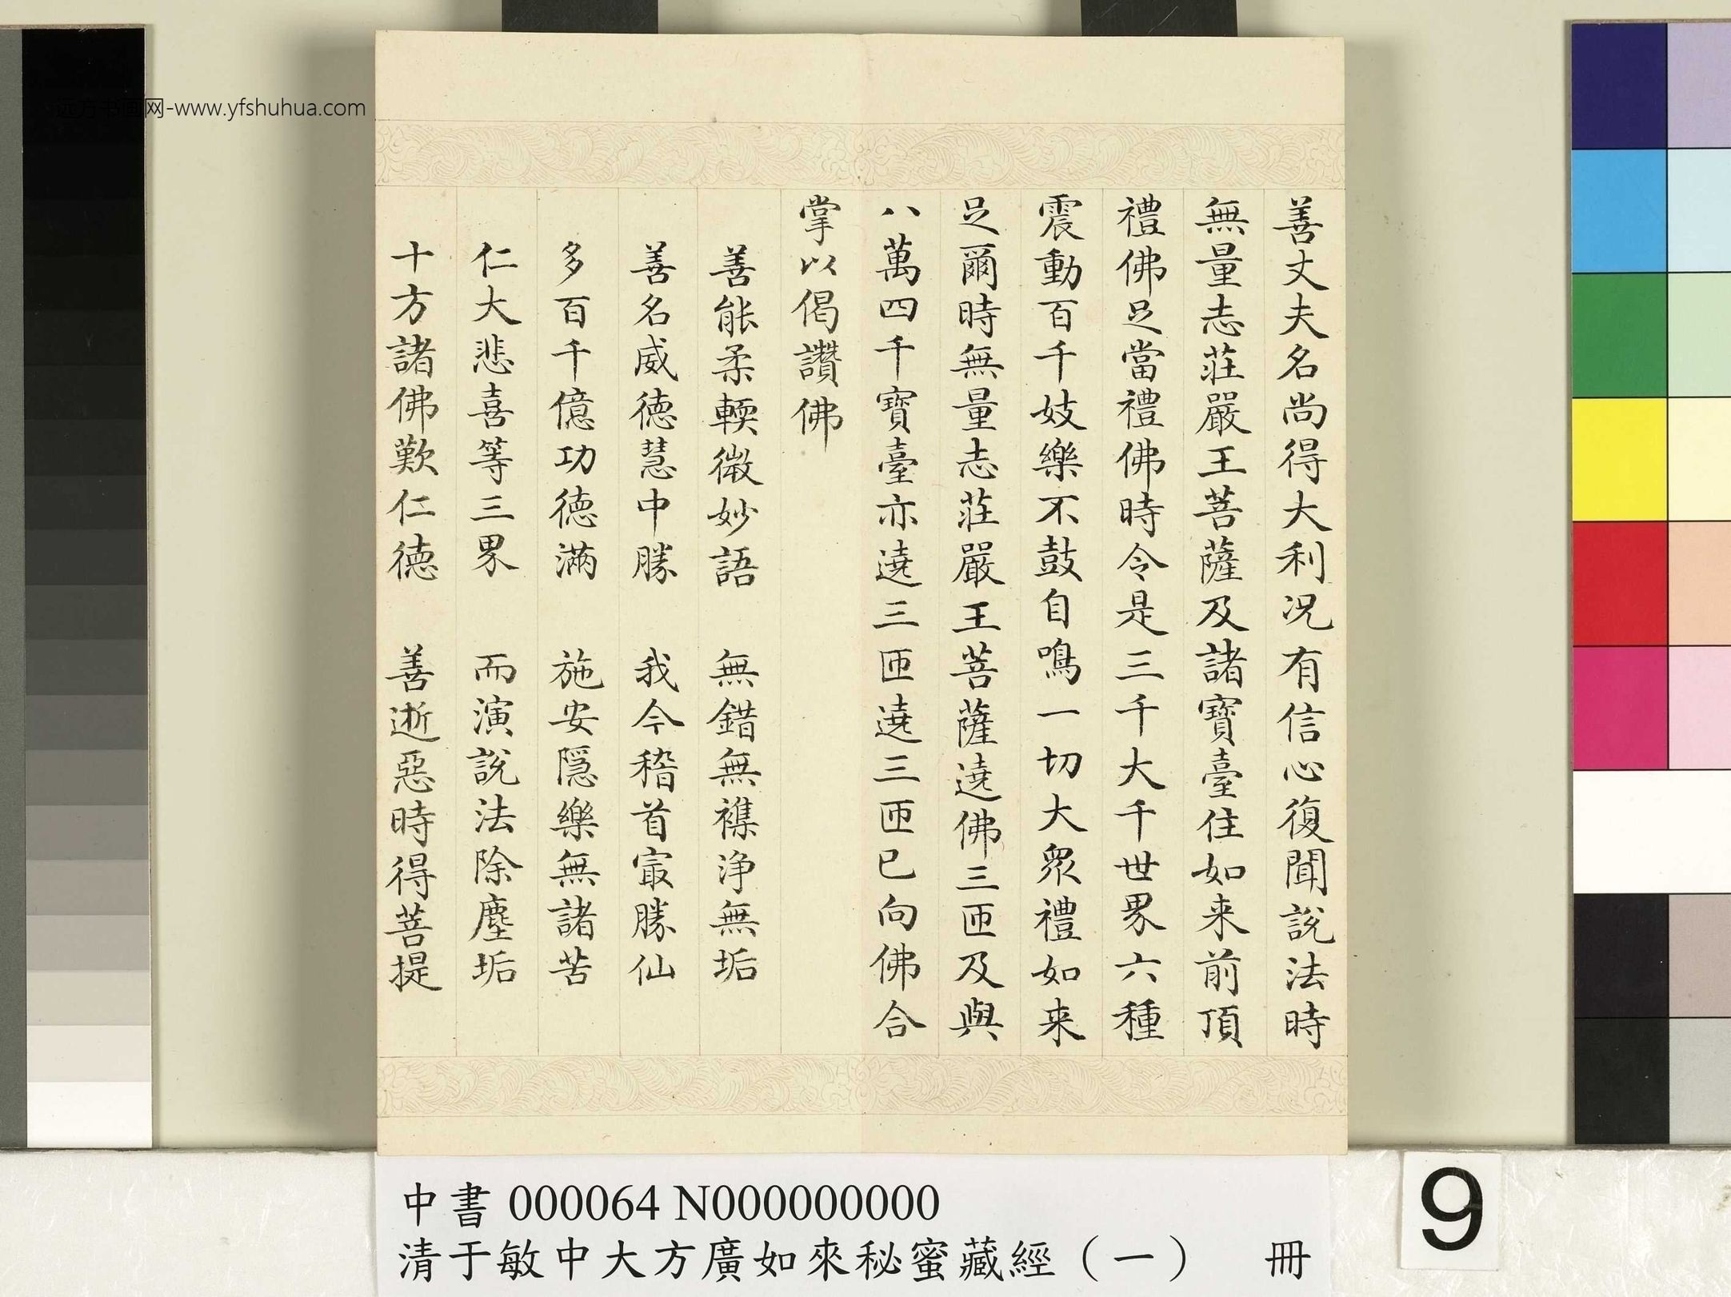 善丈夫名尚得大利况有信心復聞說法時
無量志莊嚴王菩薩及諸寶臺住如来前頂
禮佛足當禮佛時令是三千大千世界六種
震動百千妓樂不鼓自鳴一切大衆禮如来
足爾時無量志莊嚴王菩薩遶佛三匝及與
八萬四千寶臺亦遶三匝遶三匝已向佛合
掌以偈讚佛
善能柔輭微妙語 無錯無襍浄無垢
善名威德慧中勝 我今稽首冣勝仙
多百千億功德滿 施安隱樂無諸苦
仁大悲喜等三界 而演說法除塵垢
十方諸佛歎仁德 善逝惡時得菩提
中書 000064 N000000000
清于敏中大方廣如來秘蜜藏經（一） 冊
9
远方书画网-www.yfshuhua.com